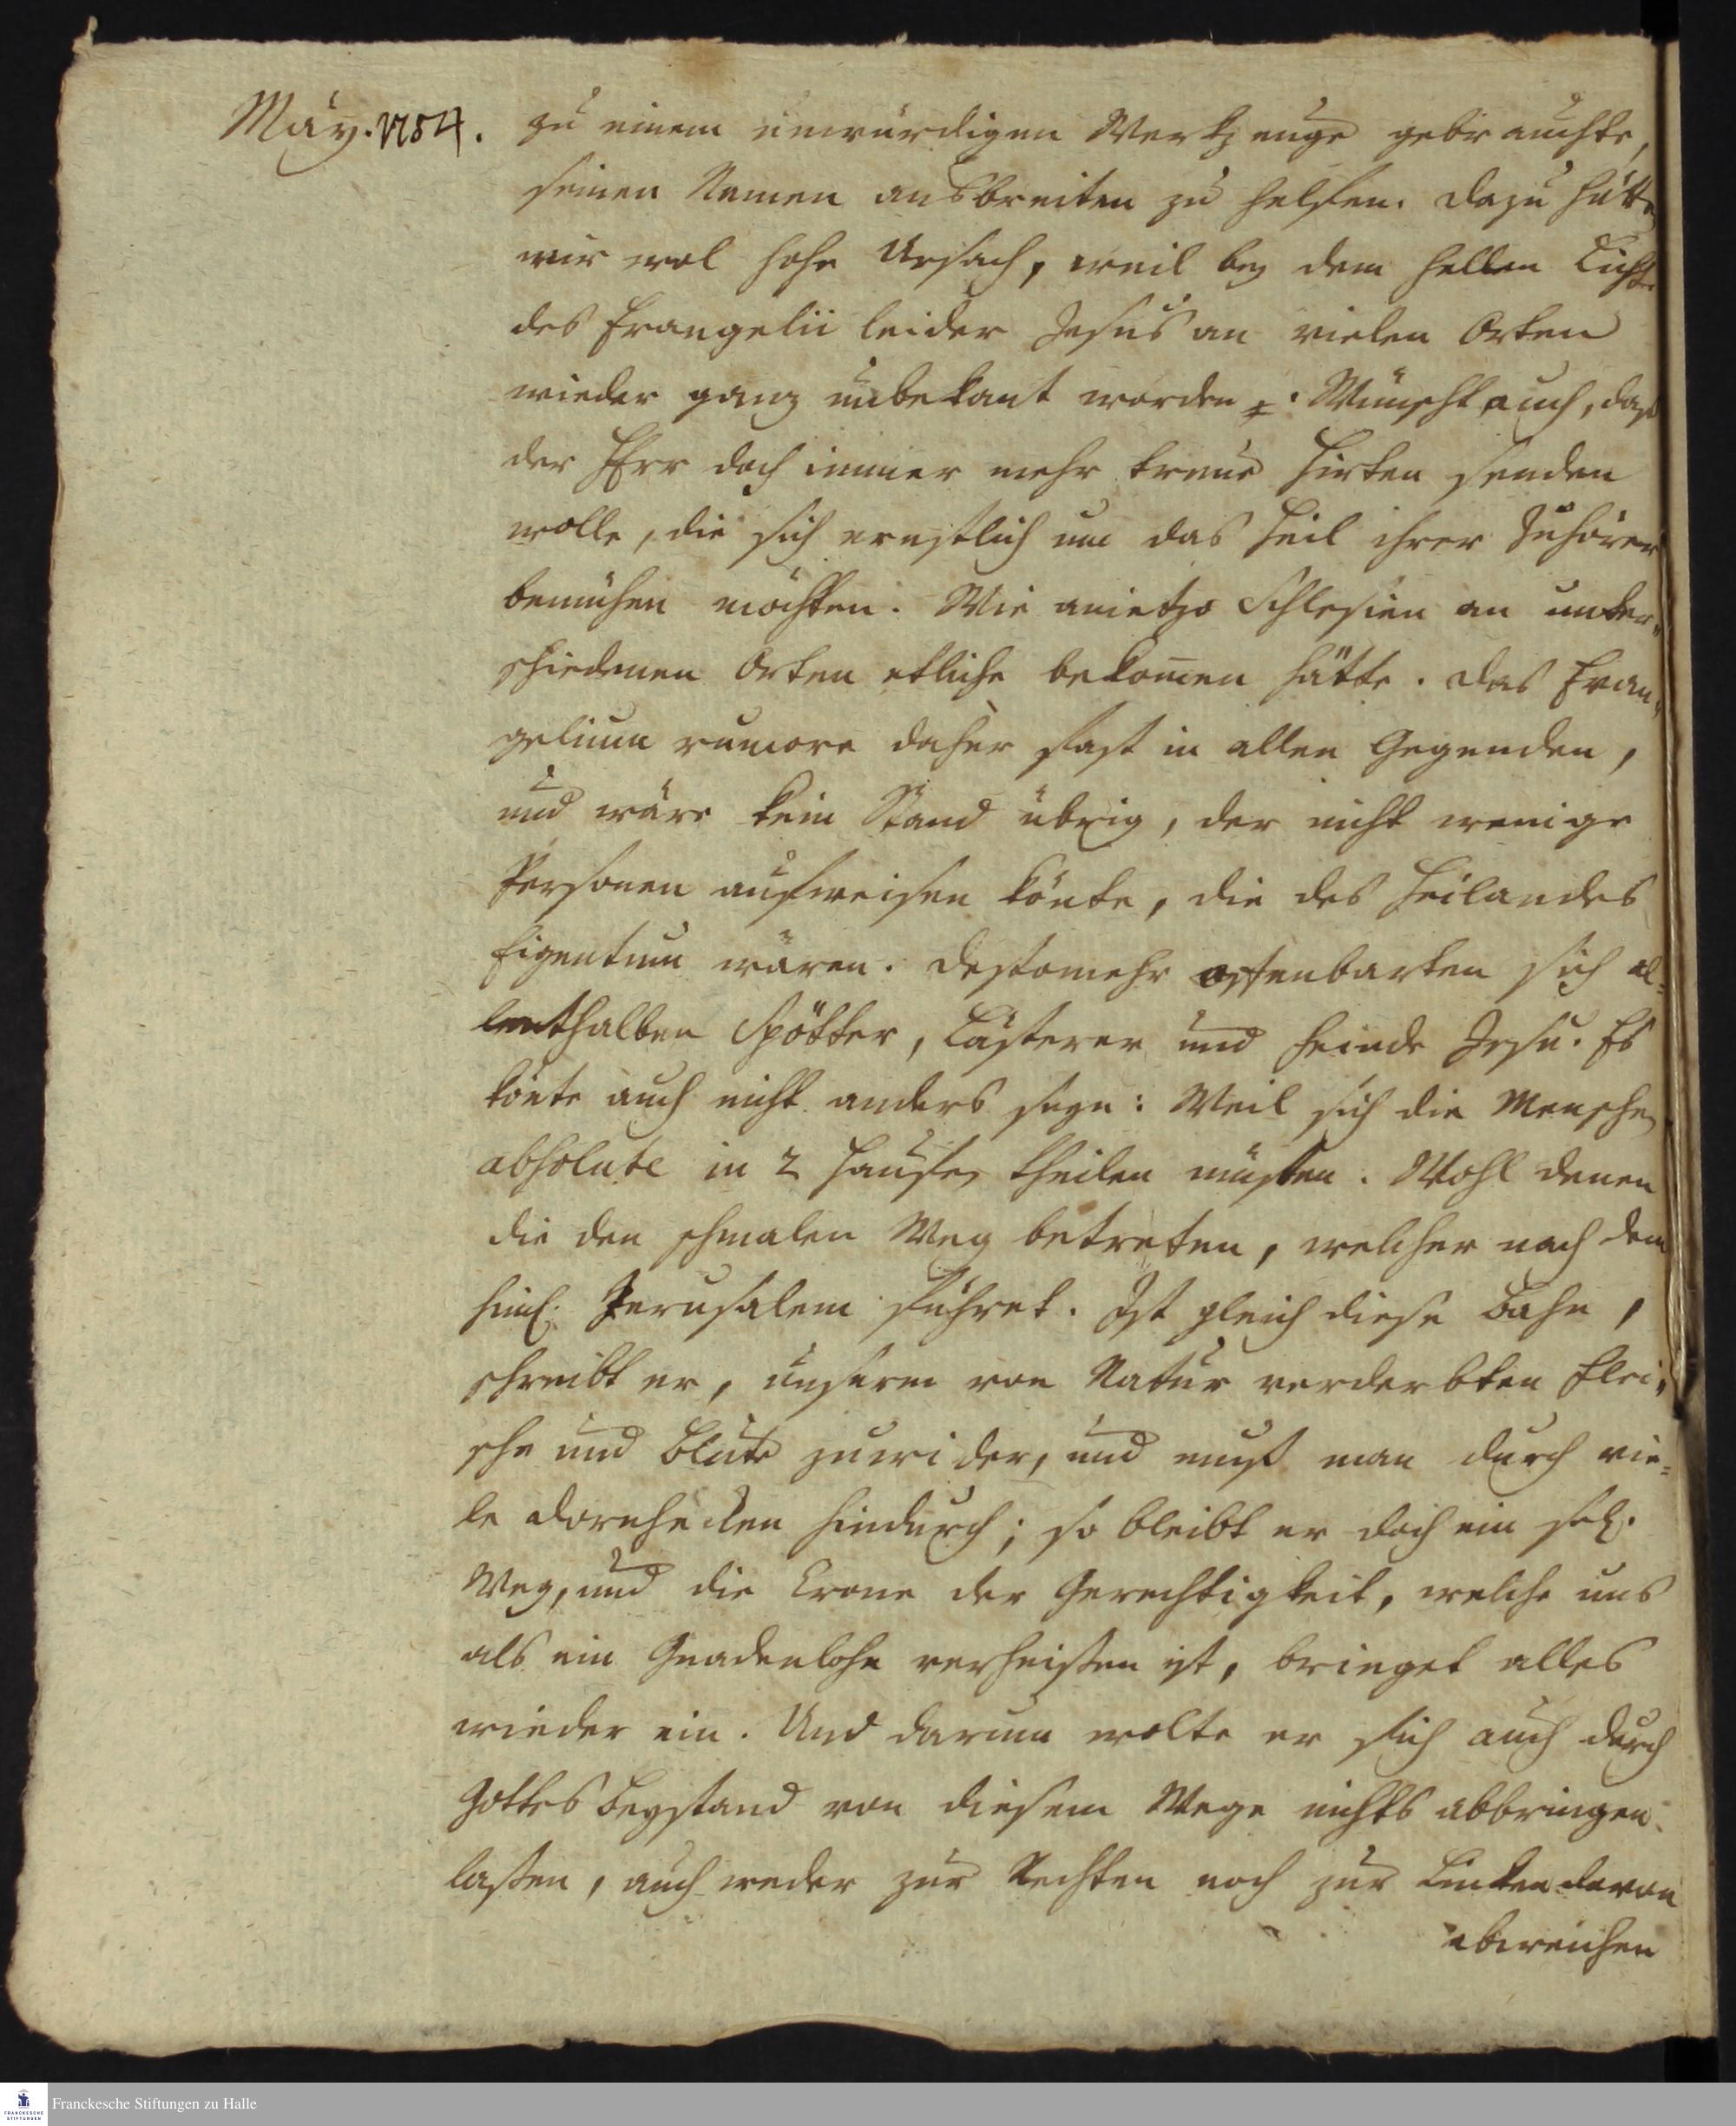 May. 1754.
zu einem unwürdigen Werkzeuge gebrauchte,
seinen Namen ausbreiten zu helfen. Dazu hätte
wir wol hohe Ursach, weil bey dem hellen Licht
des Evangelii leider Jesus an vielen Orten
wieder ganz unbekant worden. Wünscht auch, daß
der HErr doch immer mehr treue Hirten senden
wolle, die sich ernstlich um das Heil ihrer Zuhörer
bemühen möchten. Wie anietzo Schlesien an unter-
schiedenen Orten etliche bekom̅en hätte. Das Evan-
gelium rumore daher fast in allen Gegenden,
und wäre kein Stand übrig, der nicht wenige
Personen aufweisen könte, die des Heilandes
Eigentum wären. Destomehr offenbarten sich al-
lenthalben Spötter, Lästerer und Feinde Jesu. Es
könte auch nicht anders seyn: Weil sich die Menschen
absolute in 2 Haufen theilen müsten. Wohl denen
die den schmalen Weg betreten, welcher nach dem
himl. Jerusalem führet. Ist gleich diese Bahn,
schreibt er, unserm von Natur verderbten Flei-
sche und Blute zuwider, und muß man durch vie-
le Dornhecken hindurch; so bleibt er doch ein sel.
Weg, und die Crone der Gerechtigkeit, welche uns
als ein Gnadenlohn verheißen ist, bringet alles
wieder ein. Und darum wolte er sich auch durch
Gottes Beystand von diesem Wege nichts abbringen
laßen, auch weder zur Rechten noch zur Linken davon
abweichen
Franckesche Stiftungen zu Halle
FRANCKESCHE
STIFTUNGEN